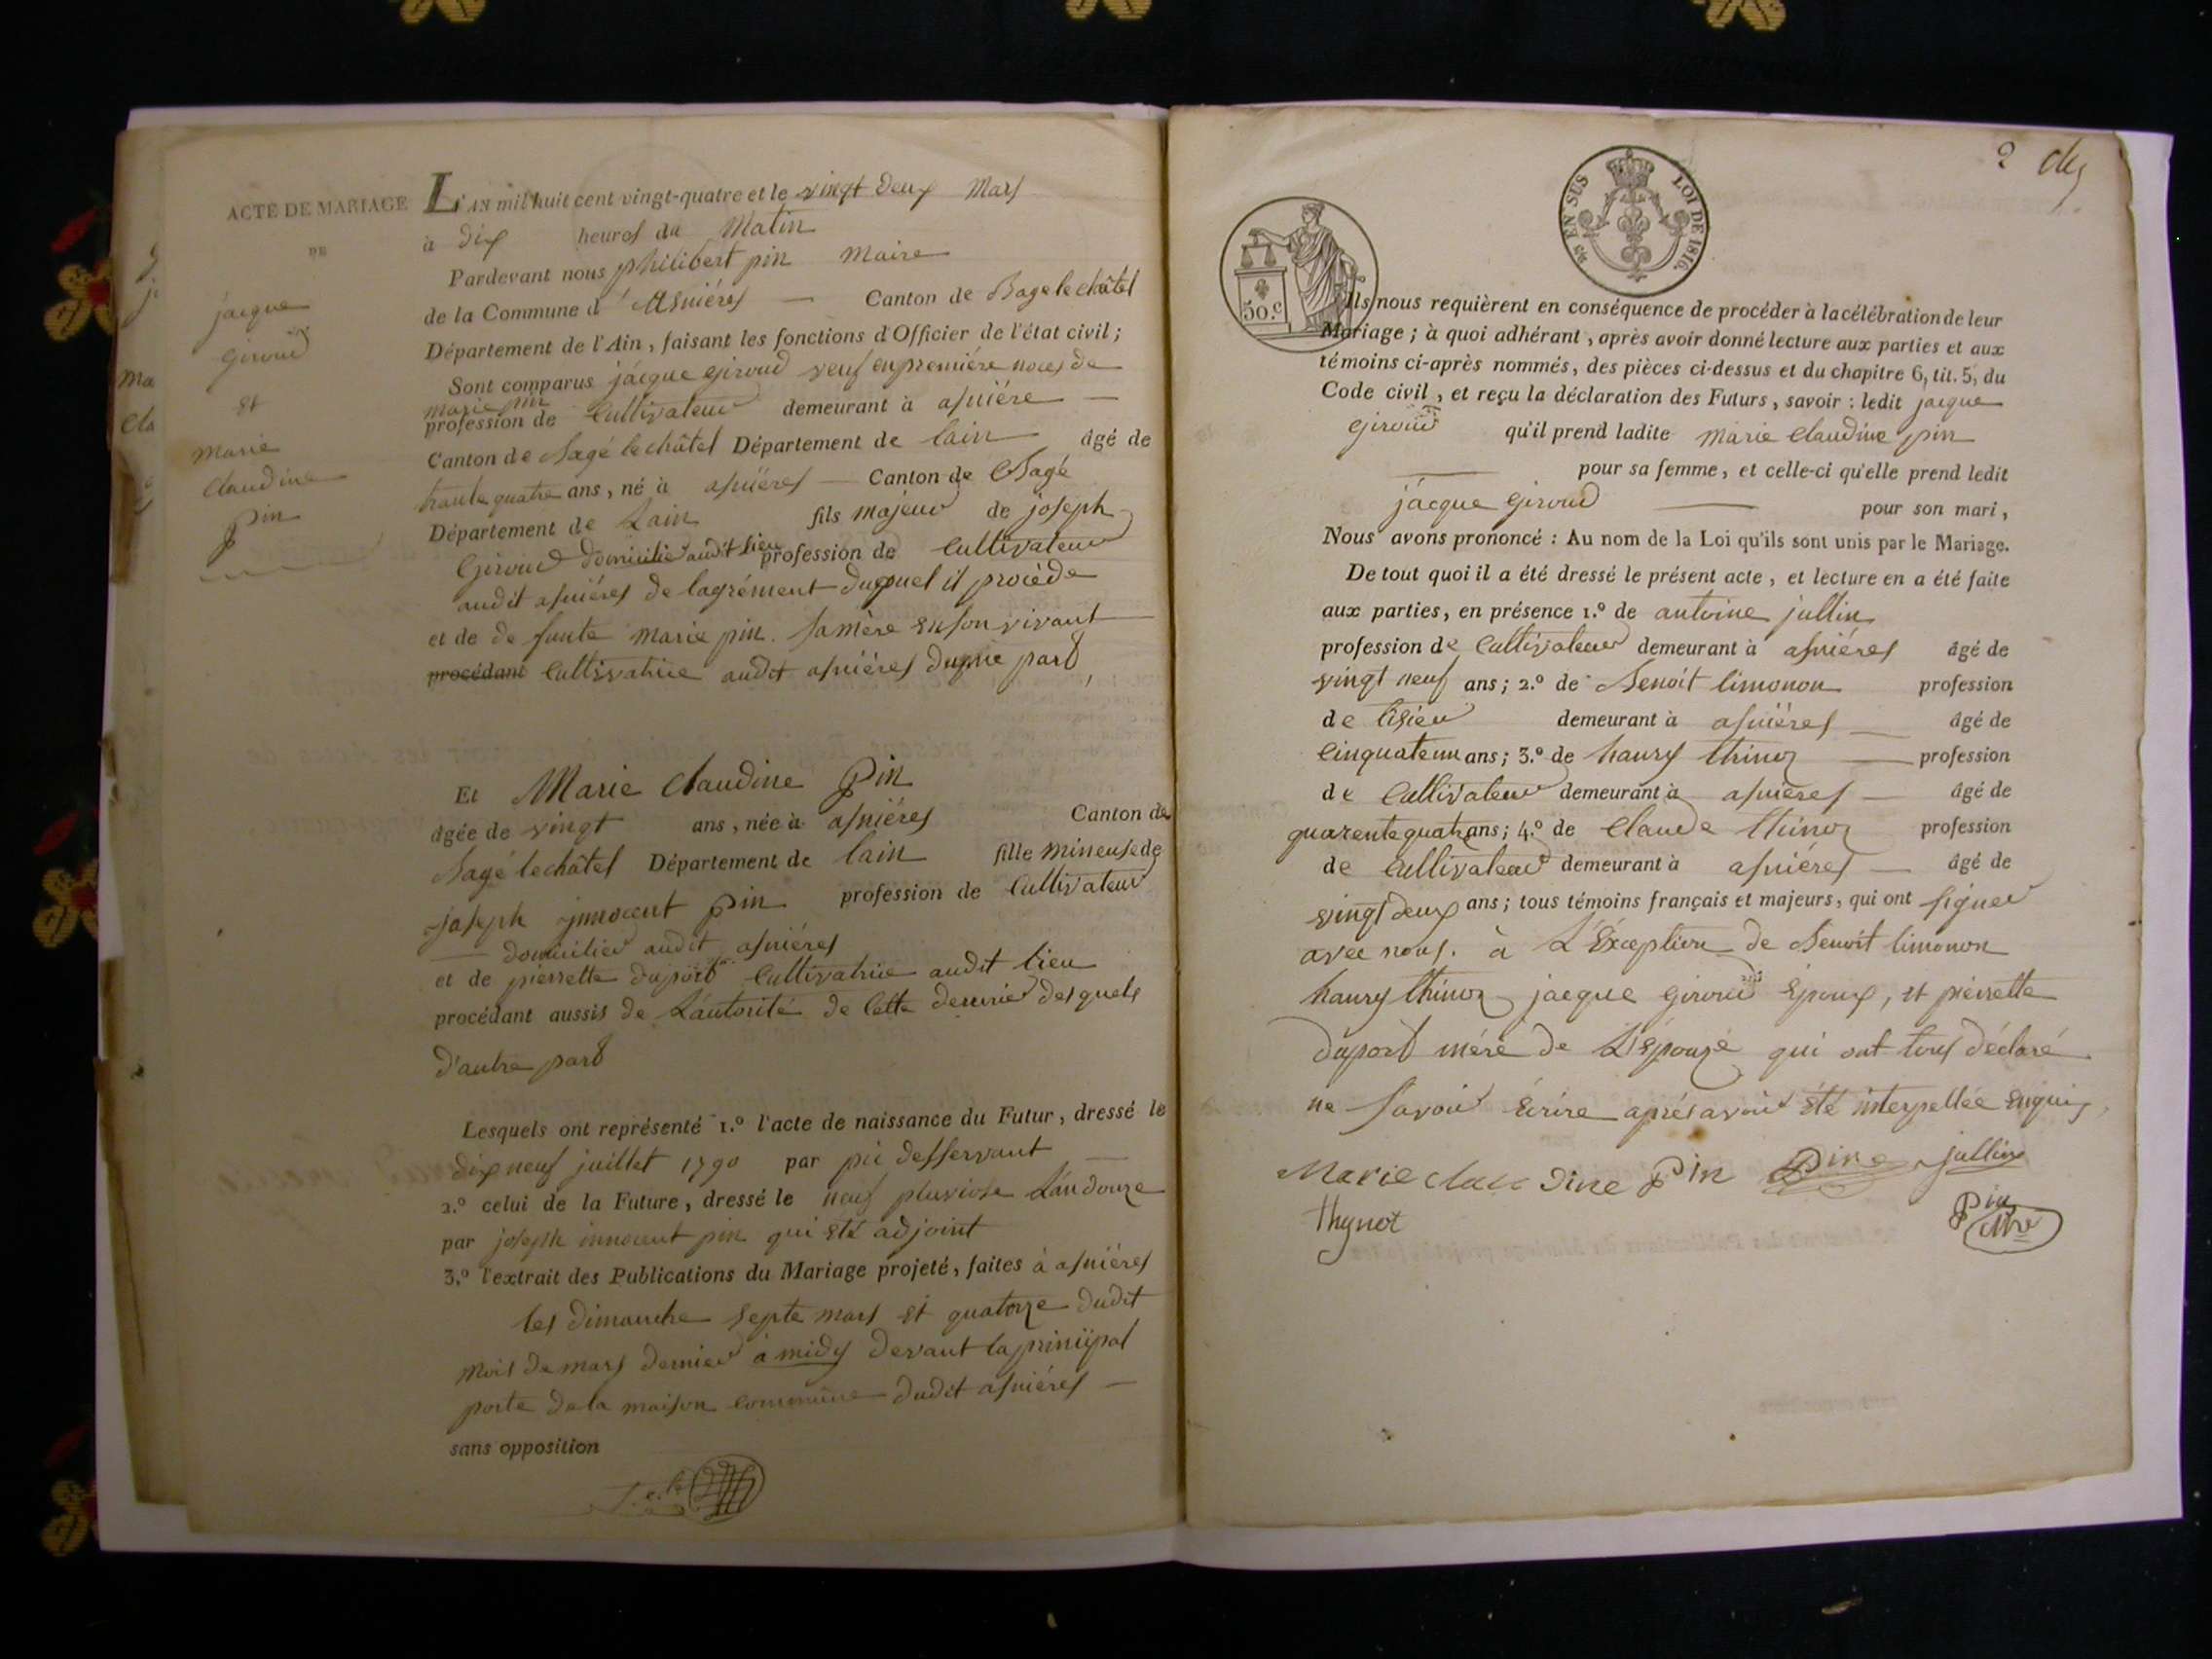 ACTE DE MARIAGE
DE
jacque
giroud
et
marie
claudine
pin
L'AN mil huit cent vingt-quatre et le vingt deux Mars
à dix heures du Matin
Pardevant nous philibert pin Maire
de la Commune d'Asniéres — Canton de Bagé le châtel
Département de l'Ain, faisant les fonctions d'Officier de l'état civil;
Sont comparus jácque giroud veuf en premiére noces de
marie pin
profession de Cultivateur demeurant à asniére —
Canton de Bagé le châtel Département de lain âgé de
trante quatre ans, né à asniéres — Canton de Bagé
Département de Lain fils majeur de joseph
Giroud domicilié audit lieu profession de Cultivateur
audit asniéres de lagrément duquel il procède
et de de funte marie pin. sa mère en son vivant
procédant Cultivatrice audit asniéres dupne part,
Et Marie Claudine Pin
âgée de vingt ans, née à asniéres Canton de
Bagé le châtel Département de lain fille mineuse de
joseph innocent Pin profession de Cultivateur
— domicilié audit asniéres
et de pierrette duport Cultivatrice audit lieu
procédant aussis de L'autorité de cette derniér desquels
d'autre part
Lesquels ont représenté 1.º l'acte de naissance du Futur, dressé le
dix neuf juillet 1790 par pic desservant —
2.º celui de la Future, dressé le neuf pluviose L'an douze
par joseph innocent pin qui été adjoint
3.º l'extrait des Publications du Mariage projeté, faites à asniéres
les dimanche septe mars et quatorze dudit
mois de mars dernier à midy devant la principal
porte de la maison commune dudit asniéres —
sans opposition
2
EN SUS LOI DE 1816.
50.c
Ils nous requièrent en conséquence de procéder à la célébration de leur
Mariage; à quoi adhérant, après avoir donné lecture aux parties et aux
témoins ci-après nommés, des pièces ci-dessus et du chapitre 6, tit. 5, du
Code civil, et reçu la déclaration des Futurs, savoir: ledit jacque
giroud qu'il prend ladite marie Claudine pin
— pour sa femme, et celle-ci qu'elle prend ledit
jácque giroud — pour son mari,
Nous avons prononcé: Au nom de la Loi qu'ils sont unis par le Mariage.
De tout quoi il a été dressé le présent acte, et lecture en a été faite
aux parties, en présence 1.º de antoine jullin
profession de Cultivateur demeurant à asniéres âgé de
vingt neuf ans; 2.º de Benoit limonon profession
de tisieu demeurant à asniéres — âgé de
Cinquateun ans; 3.º de haury thinoz — profession
de Cultivateur demeurant à asniéres — âgé de
quarente quatre ans; 4.º de Claude thinoz profession
de Cultivateur demeurant à asniéres — âgé de
vingt deux ans; tous témoins français et majeurs, qui ont signer
avec nous. à L'Éxception de Benoit limonon
haury thinoz jacque giroud Époux, et pierrette
duport mére de L'épouzé qui ont tous déclaré
ne savoir écrire aprés avoir été interpellée enquis,
Marie claudine Pin Pin jullin
thynot
Pin
Mre